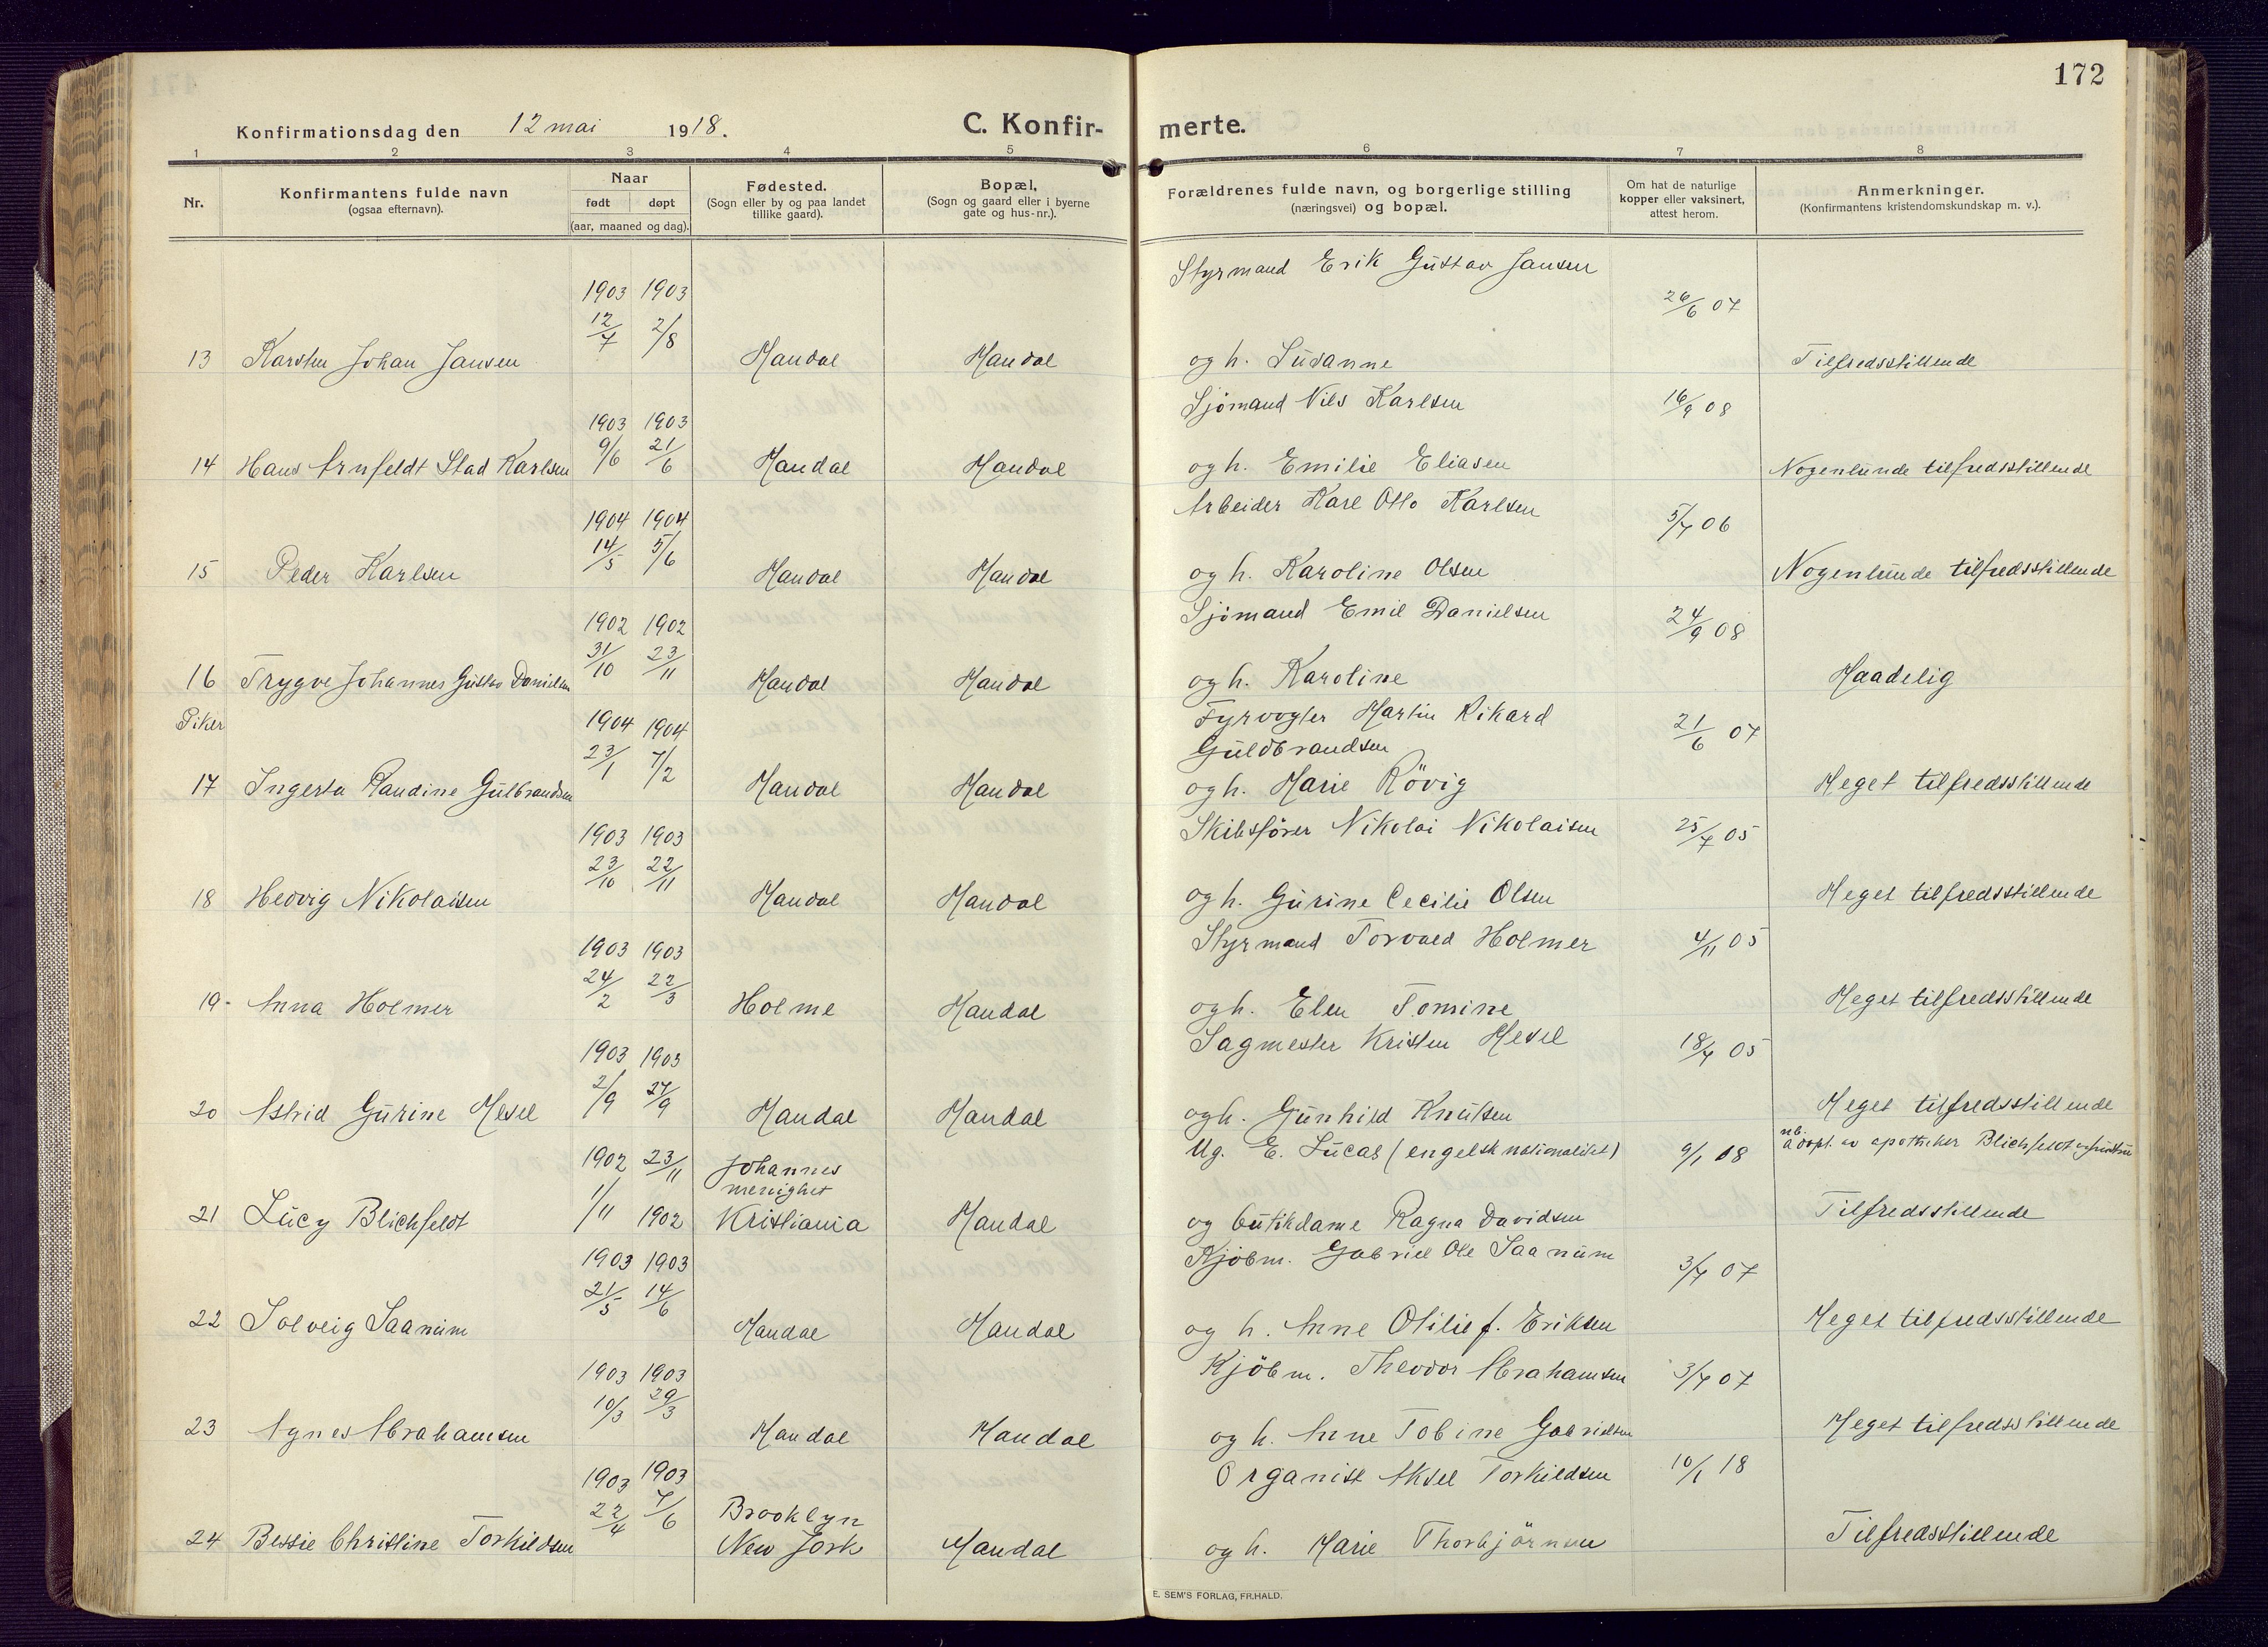 172
Konfirmationsdag den 12 mai 1918.
C. Konfir-
merte.
1 2 3 4 5 6 7 8
Nr.
Konfirmantens fulde navn
(ogsaa efternavn).
Naar
født døpt
(aar, maaned og dag).
Fødested.
(Sogn eller by og paa landet
tillike gaard).
Bopæl,
(Sogn og gaard eller i byerne
gate og hus-nr.).
Forældrenes fulde navn, og borgerlige stilling
(næringsvei) og bopæl.
Om hat de naturlige
kopper eller vaksinert,
attest herom.
Anmerkninger.
(Konfirmantens kristendomskundskap m. v.).
Styrmand Erik Gustav Jansen
1903 1903 26/6 07
12/7 2/8
13 Karsten Johan Jansen Mandal Mandal og h. Susanne Tilfredsstillende
Sjömand Nils Karlsen 16/9 08
1903 1903
9/6 21/6
14 Hans Arnfeldt Stad Karlsen Mandal Mandal og h. Emilie Eliasen Nogenlunde tilfredsstillende
Arbeider Karl Otto Karlsen
1904 1904 5/7 06
14/5 5/6
15 Peder Karlsen Mandal Mandal og h. Karoline Olsen Nogenlunde tilfredsstillende
Sjömand Emil Danielsen
1902 1902 24/9 08
31/10 23/11
16 Trygve Johannes Gustav Danielsen Mandal Mandal og h. Karoline Maadelig
Piker 1904 1904 Fyrvogter Martin Rikard 21/6 07
23/1 7/2 Guldbrandsen
17 Ingerta Randine Gulbrandsen Mandal Mandal og h. Marie Rövig Meget tilfredsstillende
1903 1903 Skibsförer Nikolai Nikolaisen 25/7 05
23/10 22/11
18 Hedvig Nikolaisen Mandal Mandal og h. Gurine Cecilie Olsen Meget tilfredsstillende
1903 1903 Styrmand Torvald Holmer 4/11 05
24/2 22/3
19 - Anna Holmer Holme Mandal og h. Elen Tomine Meget tilfredsstillende
1903 1903 Sagmester Kristen Mesel 18/7 05
2/9 27/9
20 Astrid Gurine Mesel Mandal Mandal og h. Gunhild Knutsen Meget tilfredsstillende
1902 23/11 Johannes Ug. E. Lucas (engelsk nationalitet) 9/1 18 nb. adopt. av apotheker Blichfeldt og hustru
menighet
1/11 1902
21 Lucy Blichfeldt Kristiania Mandal og butikdame Ragna Davidsen Tilfredsstillende
1903 1903 Kjöbm. Gabriel Ole Saanum 3/7 07
21/5 14/6
22 Solveig Saanum Mandal Mandal og h. Anne Otilie f. Eriksen Meget tilfredsstillende
1903 1903 Kjöbm. Theodor Abrahamsen 3/7 07
10/3 29/3
23 Agnes Abrahamsen Mandal Mandal og h. Anne Tobine Gabrielsen Meget tilfredsstillende
1903 1903 Organist Aksel Torkildsen 10/1 18
22/4 7/6 Brooklyn
24 Bessie Christine Torkildsen New York Mandal og h. Marie Thorbjörnsen Tilfredsstillende
E. SEM'S FORLAG, FR.HALD.